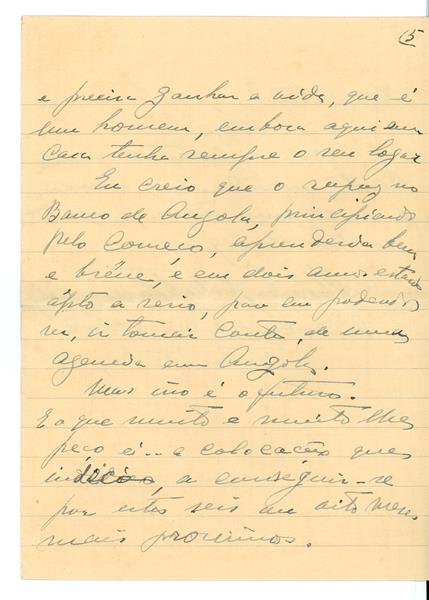 5
e precisa ganhar a vida, que é
um homem, embora aqui em
casa tenha sempre o seu logar
Eu creio que o rapaz no
Banco de Angola, principiando
pelo começo, aprenderia bem
e brêve, e em dois anos estava
ápto a serio, para em podendo
ser, ir tomar conta, de uma
agencia em Angola.
Mas isso é o futuro.
E o que muito e muito lhe
peço é... a colocação que
indico, a conseguir-se
por estes seis ou oito mezes
mais proximos.